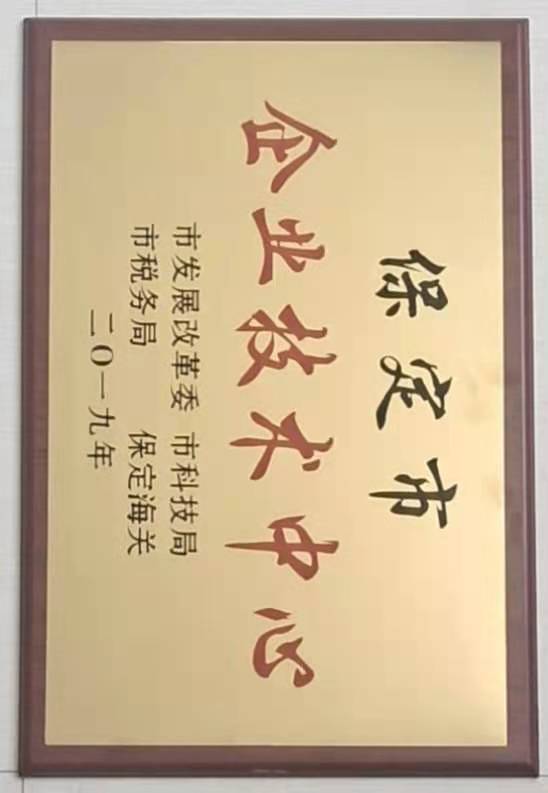 保定市
企业技术中心
市发展改革委 市科技局
市税务局 保定海关
二〇一九年